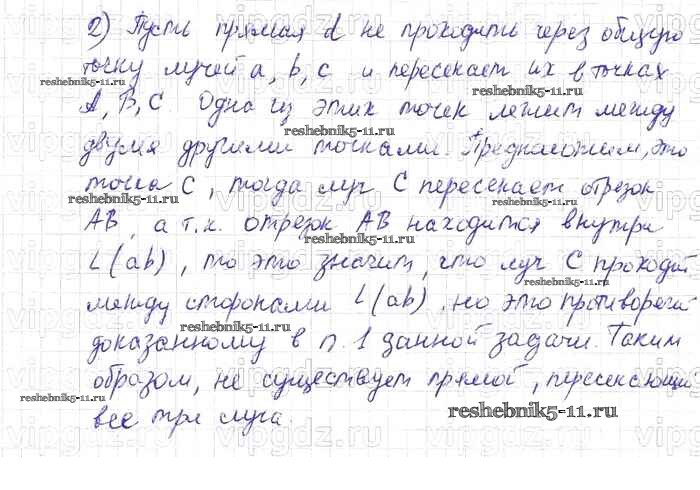 2) Пусть прямая d не проходить через общую
точку лучей a, b, c и пересекает их в точках
A, B, C. Одна из этих точек лежит между
двумя другими точками. Предположим, это
точка C, тогда луч C пересекает отрезок
AB, а т.к. отрезок AB находится внутри
L(ab), то это значит, что луч C проходит
между сторонами L(ab), но это противоречи
доказанному в п. 1 данной задачи. Таким
образом, не существует прямой, пересекающ
все три луча.
reshebnik5-11.ru
reshebnik5-11.ru
reshebnik5-11.ru
reshebnik5-11.ru
reshebnik5-11.ru
reshebnik5-11.ru
reshebnik5-11.ru
reshebnik5-11.ru